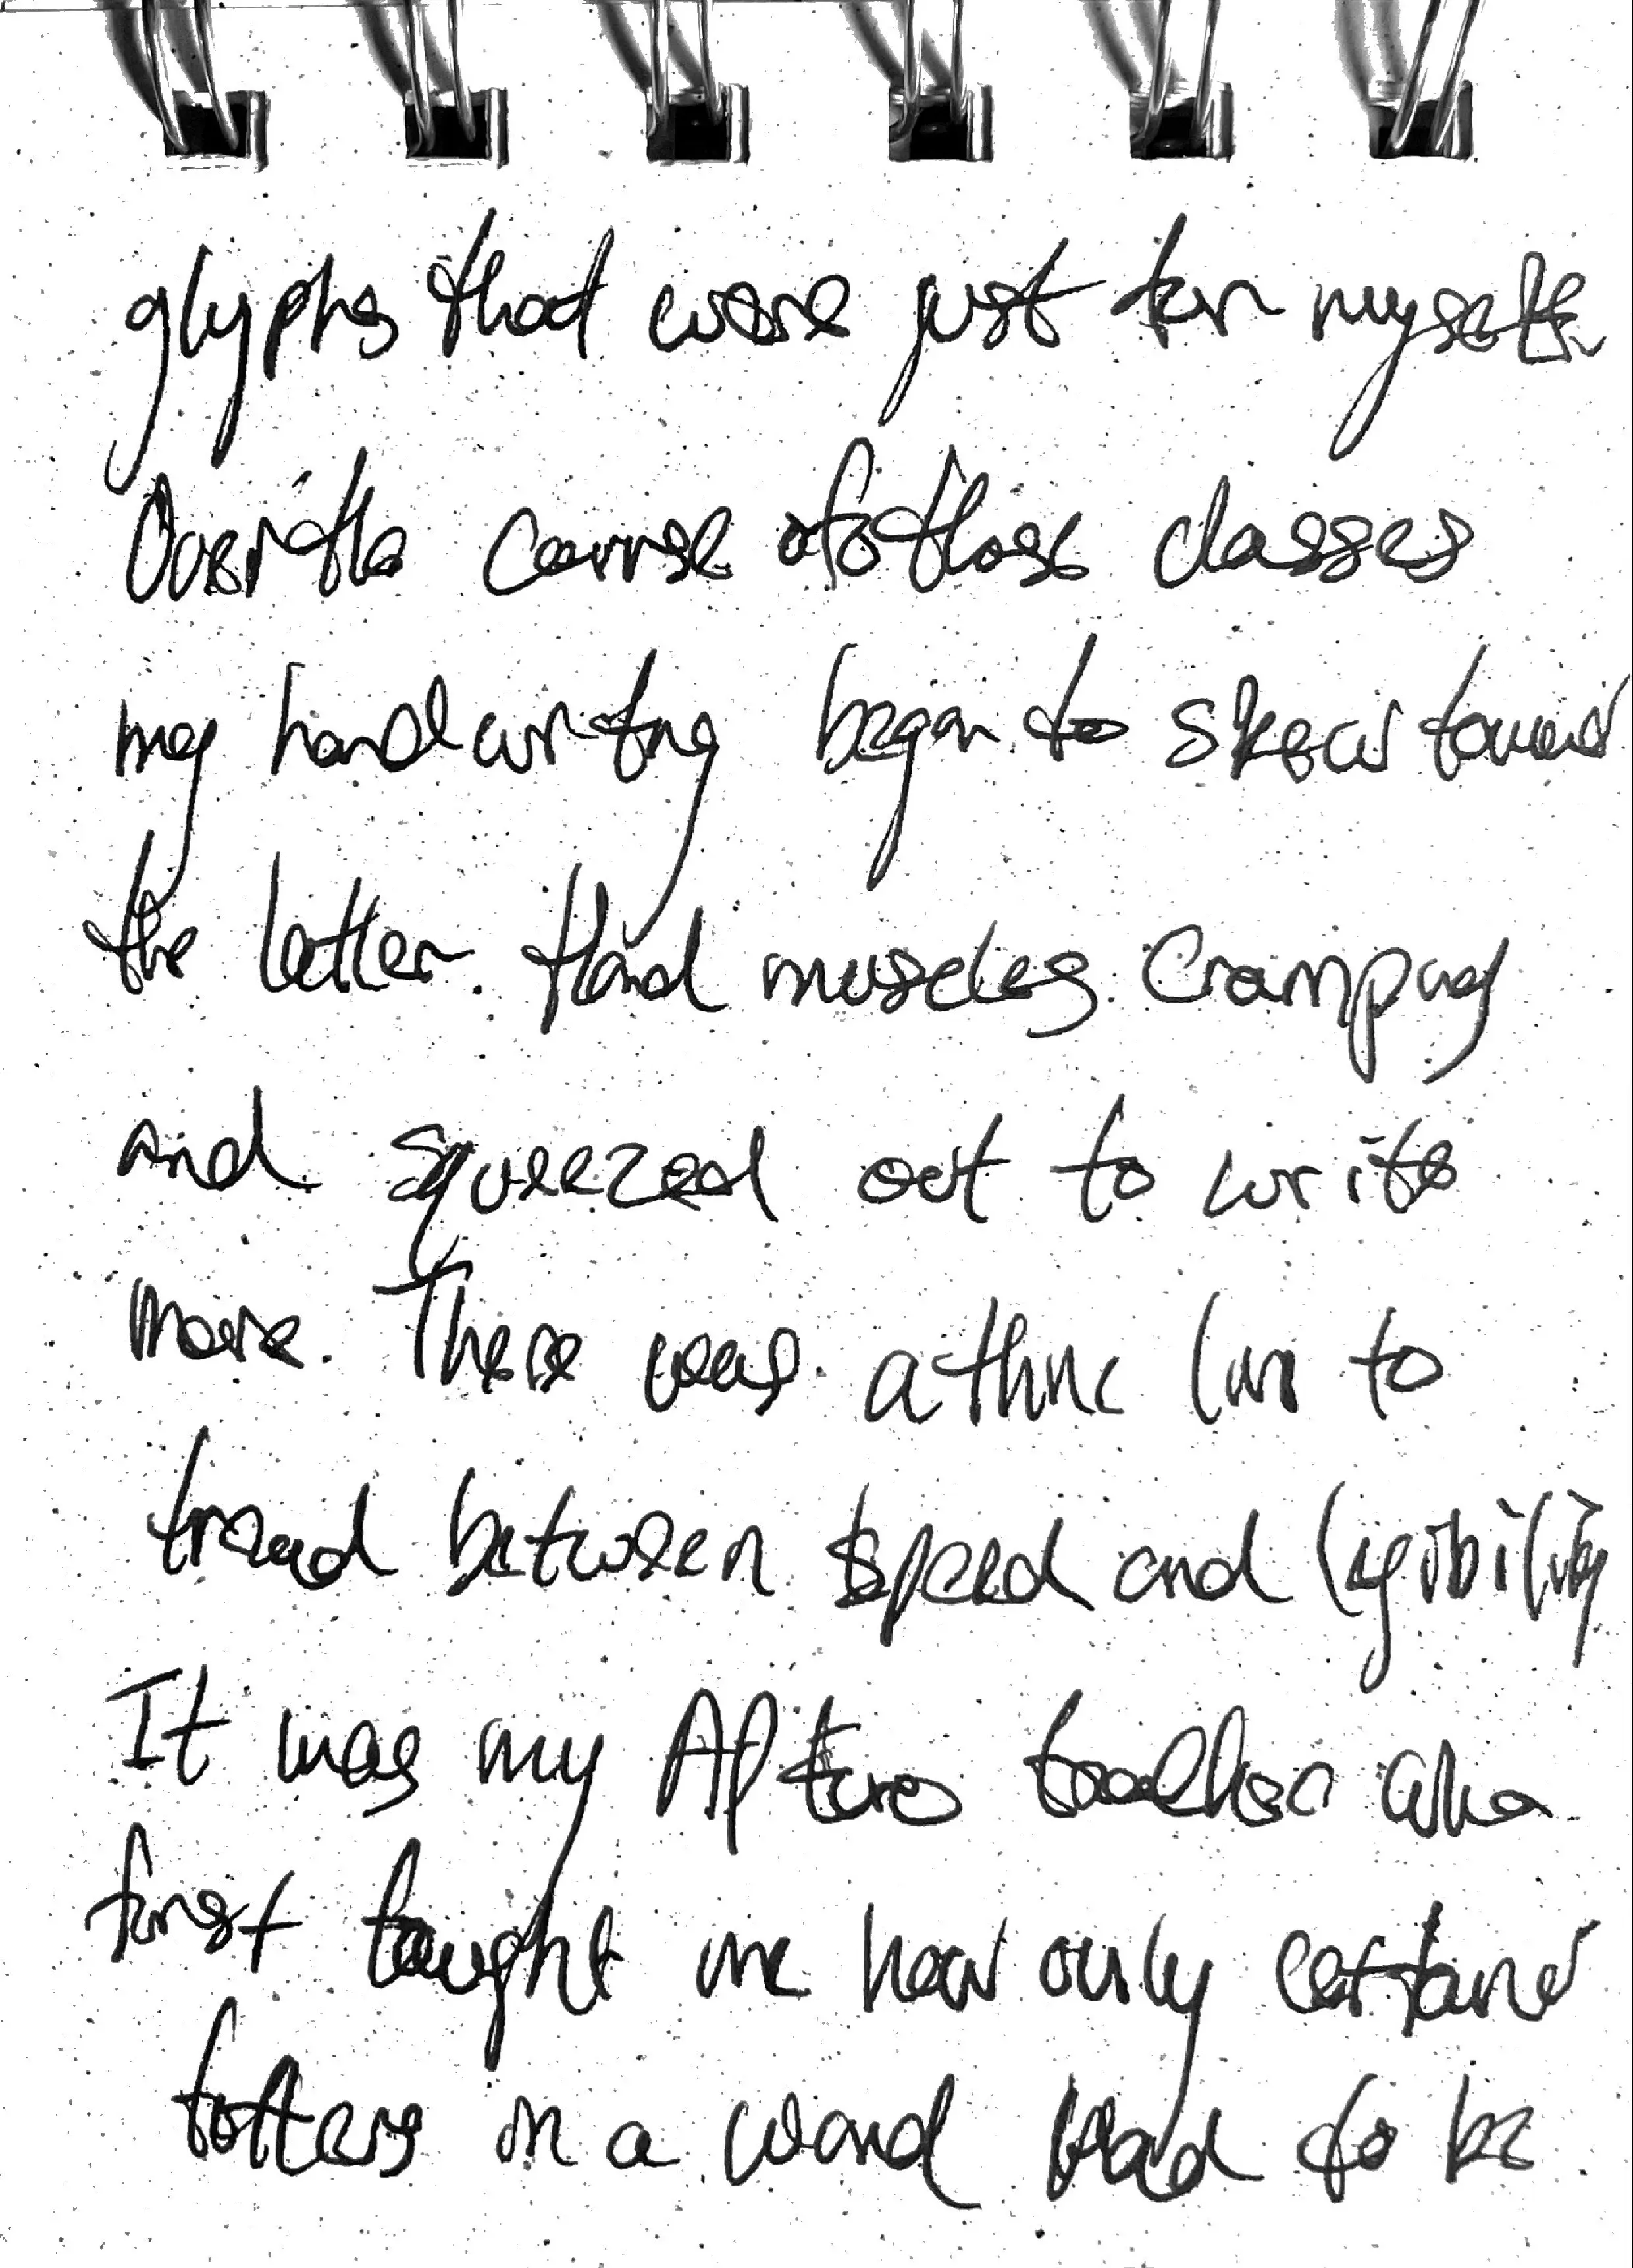 glyphs that were just for myself.
Over the course of those classes
my handwriting began to skew toward
the latter. Hand muscles cramped
and squeezed out to write
more. There was a thin line to
tread between speed and legibility
It was my AP Euro teacher who
first taught me how only certain
letters in a word had to be